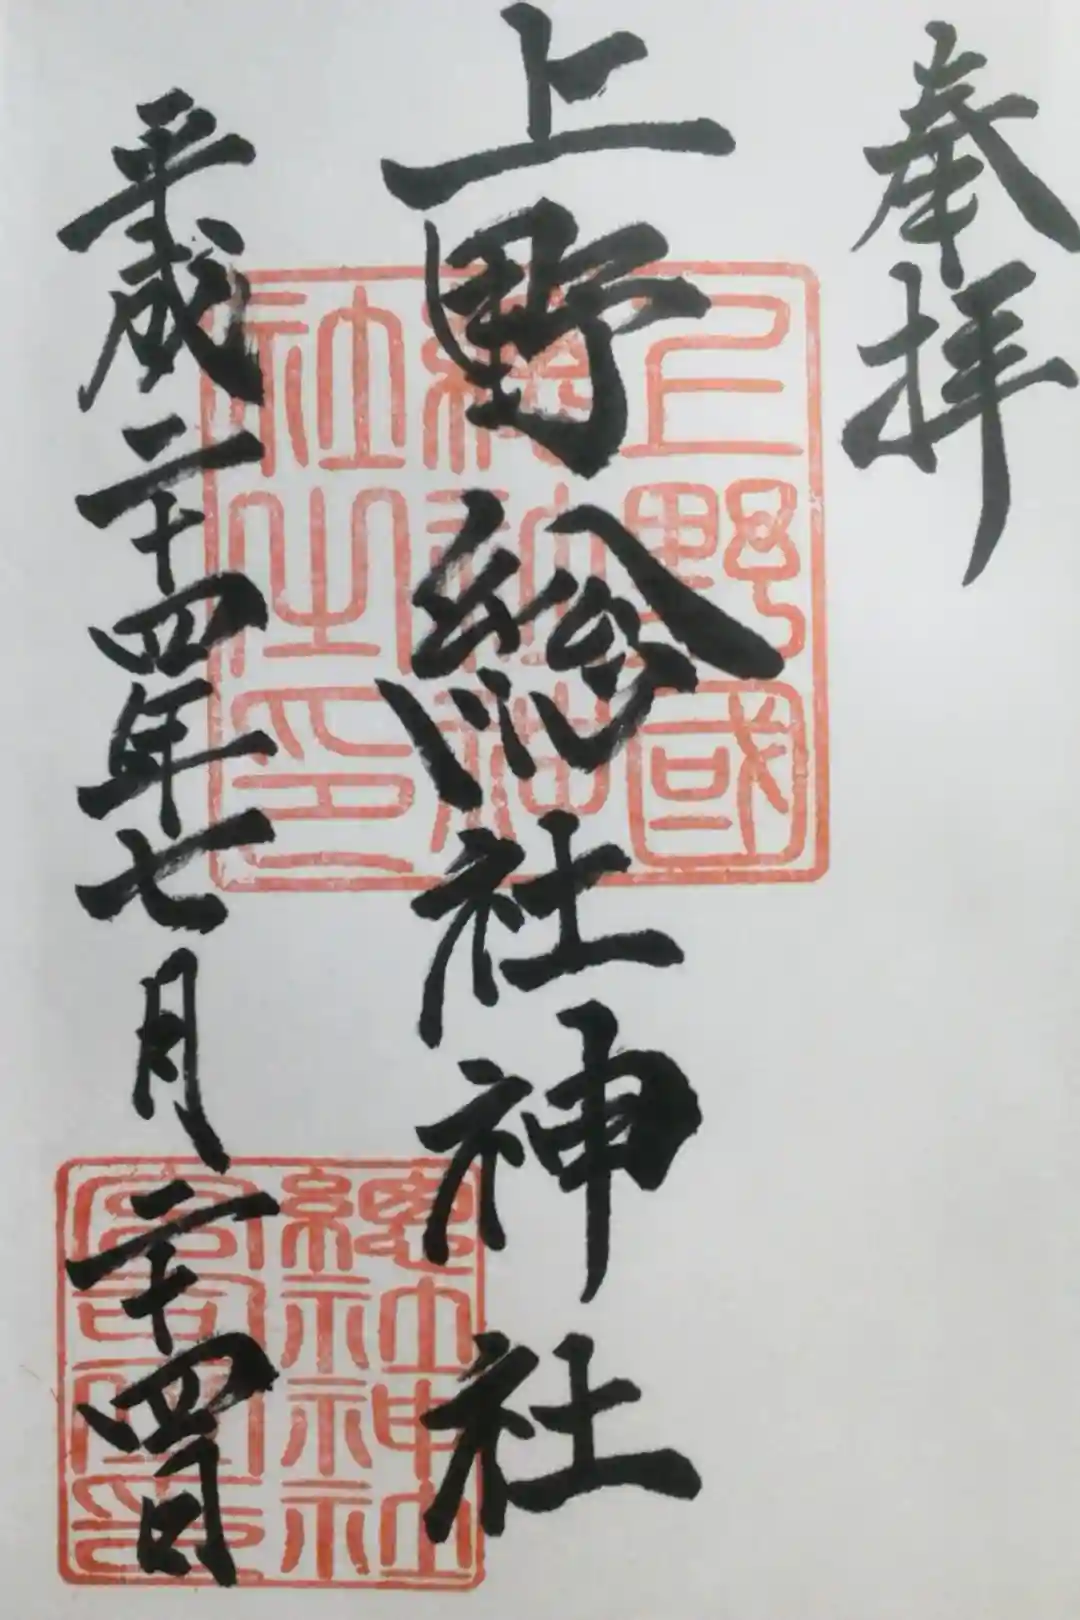 奉拝
上野総社神社
平成二十四年七月二十四日
上野國
總社神
社之印
總社神社
宮司之印